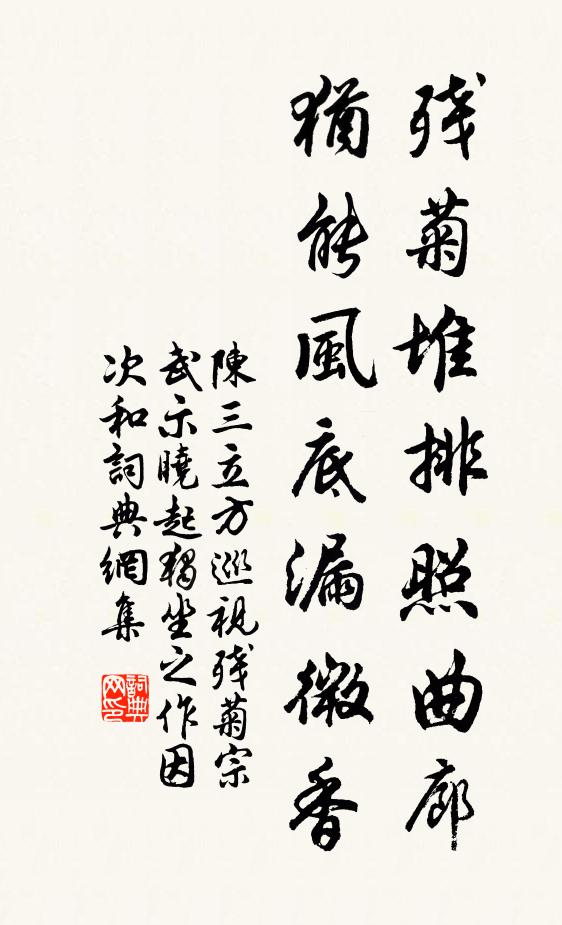 残菊堆排照曲廊
猶能風底漏微香
陳三立方巡視残菊宗
武示曉起獨坐之作因
次和詞典網集
詞典
网印